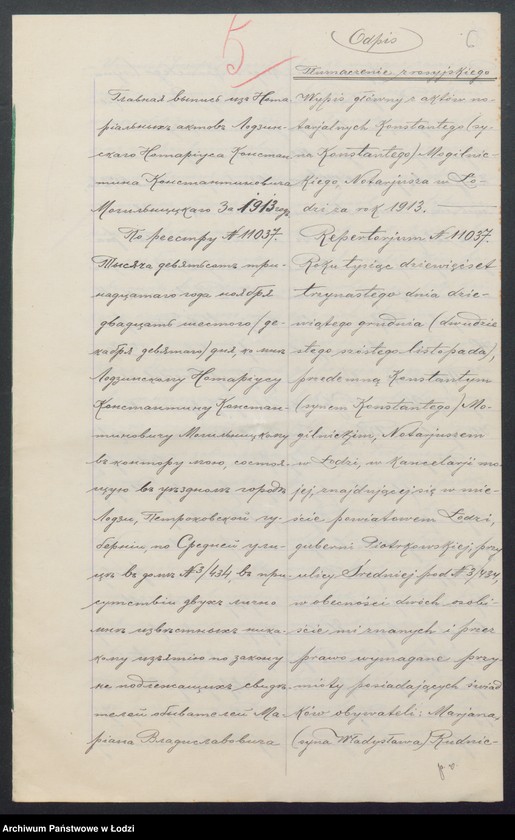 5
Odpis
Tłumaczenie z rosyjskiego
Главная выпись изъ Нота
ріальныхъ актовъ Лодзин-
скаго Нотаріуса Констан
тина Константиновича
Могильницкаго За 1913 годъ
По реестру № 11037.
Тысяча девятьсотъ три-
надцатаго года ноября
двадцать шестого /де-
кабря девятаго/ дня, ко мнѣ
Лодзинскому Нотаріусу
Константину Констан-
тиновичу Могильницкому
въ контору мою, состоя-
щую въ уѣздномъ городѣ
Лодзи, Петроковской гу-
берніи, по Средней ули-
цѣ въ домѣ № 3/434, въ при-
сутствіи двухъ лично
мнѣ извѣстныхъ ника-
кому изъятію по закону
не подлежащихъ свидѣ-
телей обывателей Ма-
ріана Владиславовича
Wypis główny z aktów no-
tarjalnych Konstantego (sy-
na Konstantego) Mogilnic-
kiego, Notarjusza w Ło-
dzi za rok 1913.
Repertorjum № 11037.
Roku tysiąc dziewięćset
trzynastego dnia dzie-
wiątego grudnia (dwudzie
stego szóstego listopada),
przedemną Konstantym
(synem Konstantego) Mo-
gilnickim, Notarjuszem
w Łodzi, w kancelarji mo-
jej, znajdującej się w mie-
ście powiatowem Łodzi,
gubernji Piotrkowskiej, przy
ulicy Średniej pod № 3/434,
w obecności dwóch osobi-
ście mi znanych i przez
prawo wymagane przy-
mioty posiadających świad
ków obywateli: Marjana,
(syna Władysława) Rudnic-
p. v.
Archiwum Państwowe w Łodzi